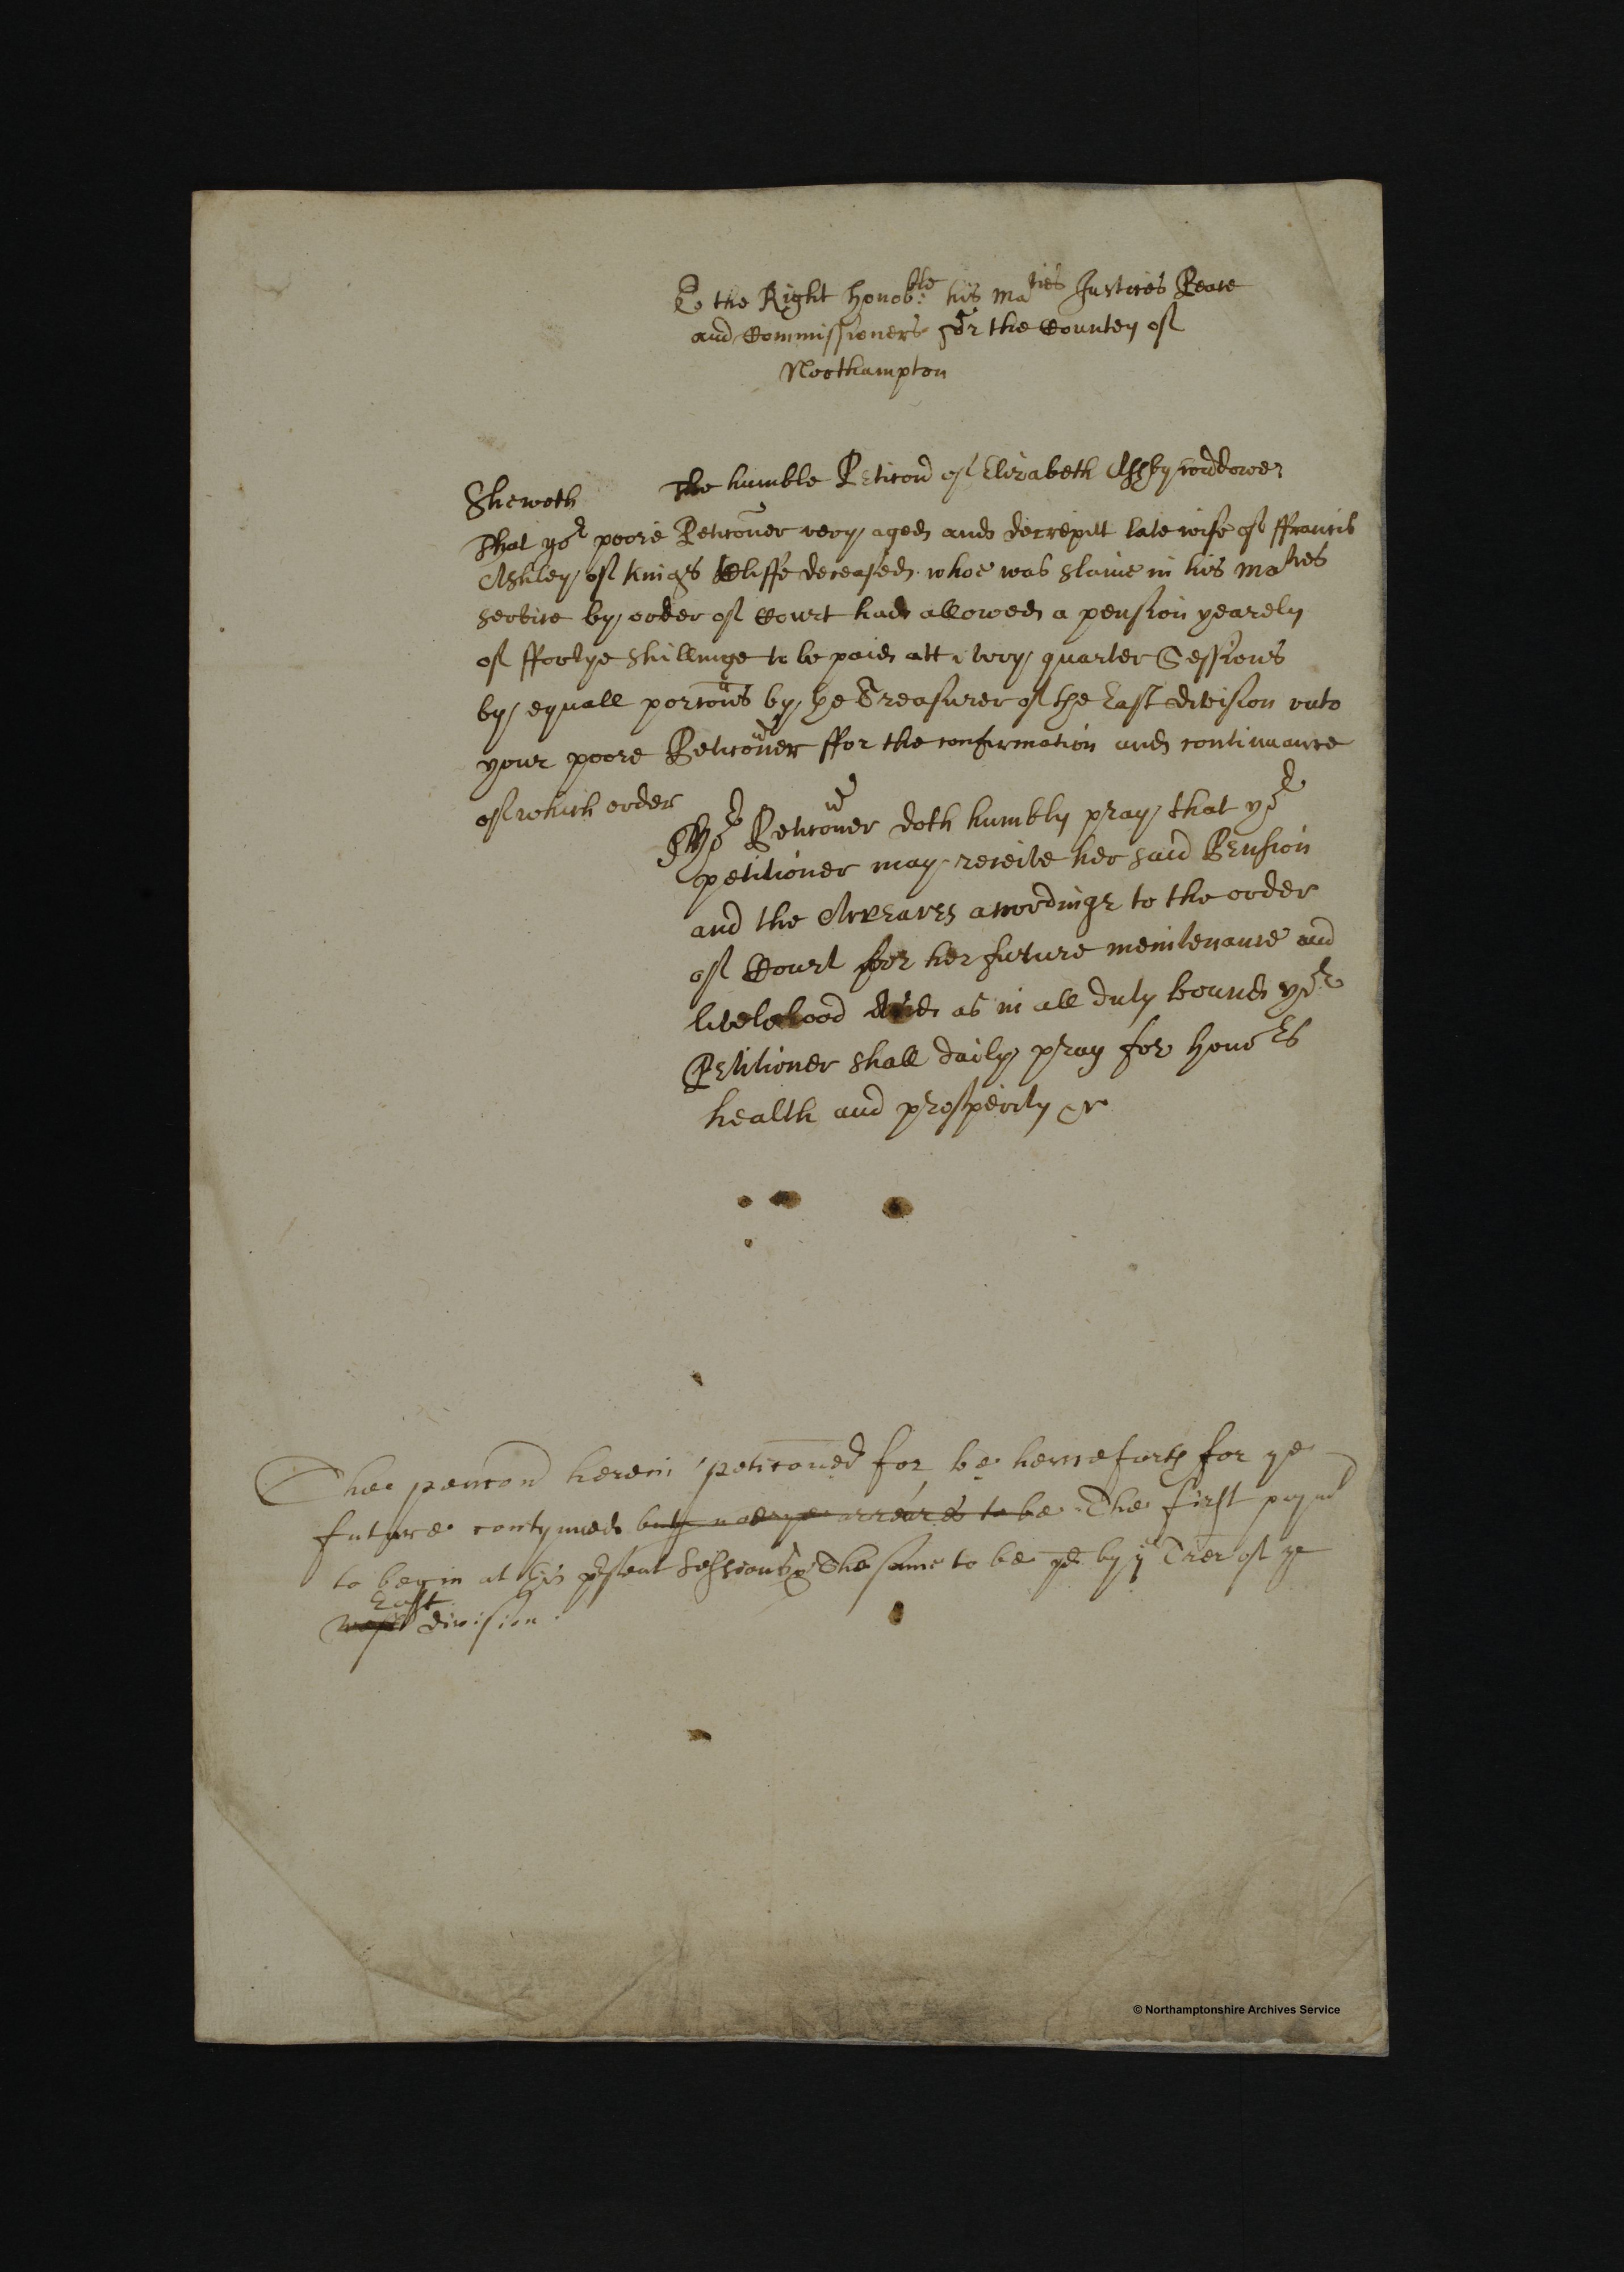 To the Right honobble his maties Justices Peace
and Commissioners for the County of
Northampton
The humble Peticon of Elizabeth Ashby widdowe
Sheweth
That yor poore Peticoner very aged and decrepitt late wife of ffrancis
Ashley of Kings Cliffe deceased whoe was slaine in his maties
service by order of Court had allowed a pension yearely
of ffortye shillinge to be paid att every quarter Sessions
by equall porcons by the Treasurer of the East division unto
your poore Peticoner ffor the confirmation and continuance
of which order
Yor Peticoner doth humbly pray that yor
petitioner may receive her said Pension
and the Arreares accordinge to the order
of Court for her future meintenance and
livelehood And as in all duty bound yor
Petitioner shall daily pray for honors
health and prosperity &c
The pencon herein peticoned for be henceforth for ye
future contynued but noe ye arreares to be The first paymt
to begin at this psent Sessions & The same to be pd by ye Trer of ye
East
west division.
© Northamptonshire Archives Service